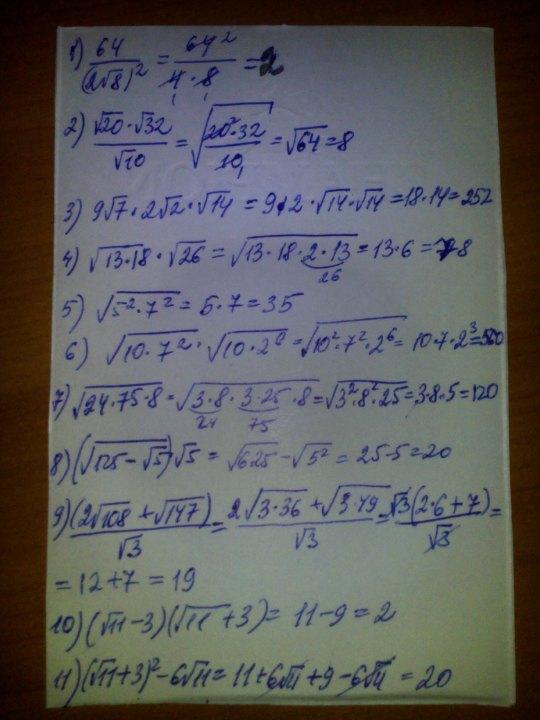 1) 64/(2√8)² = 64²/4·8 = 2
2) √20·√32/√10 = √20²·32/10₁ = √64 = 8
3) 9√7·2√2·√14 = 9·2·√14·√14 = 18·14 = 252
4) √13·18·√26 = √13·18·2·13 = 13·6 = 78
26
5) √5²·7² = 5·7 = 35
6) √10·7²·√10·2⁶ = √10²·7²·2⁶ = 10·7·2³ = 560
7) √24·75·8 = √3·8·3·25·8 = √3²·8²·25 = 3·8·5 = 120
24 75
8) (√125-√5)√5 = √625-√5² = 25-5 = 20
9) (2√108+√147)/√3 = 2√3·36+√3·49/√3 = √3(2·6+7)/√3 =
= 12+7 = 19
10) (√11-3)(√11+3) = 11-9 = 2
11) (√11+3)²-6√11 = 11+6√11+9-6√11 = 20